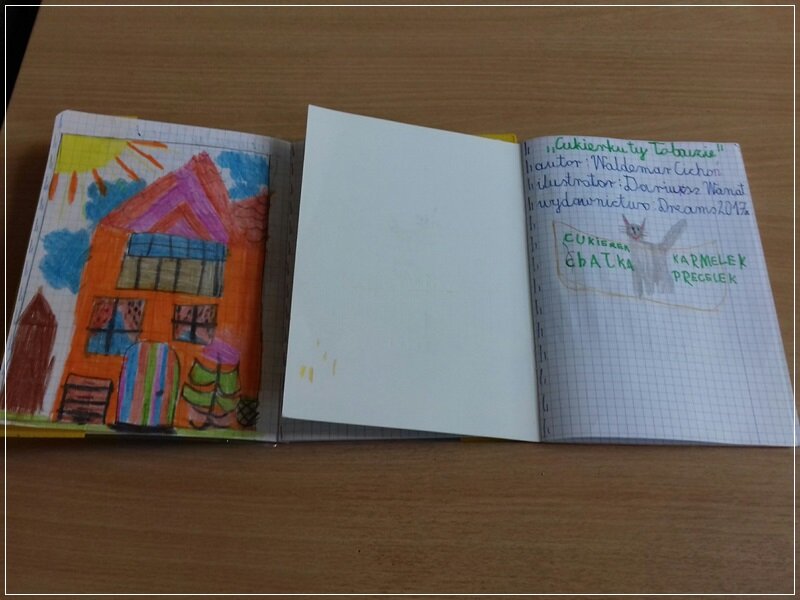 „Cukierku, Ty łobuzie"
autor: Waldemar Cichoń
ilustrator: Dariusz Wanat
wydawnictwo: Dreams 2017r.
CUKIEREK
KARMELEK
PRECELEK